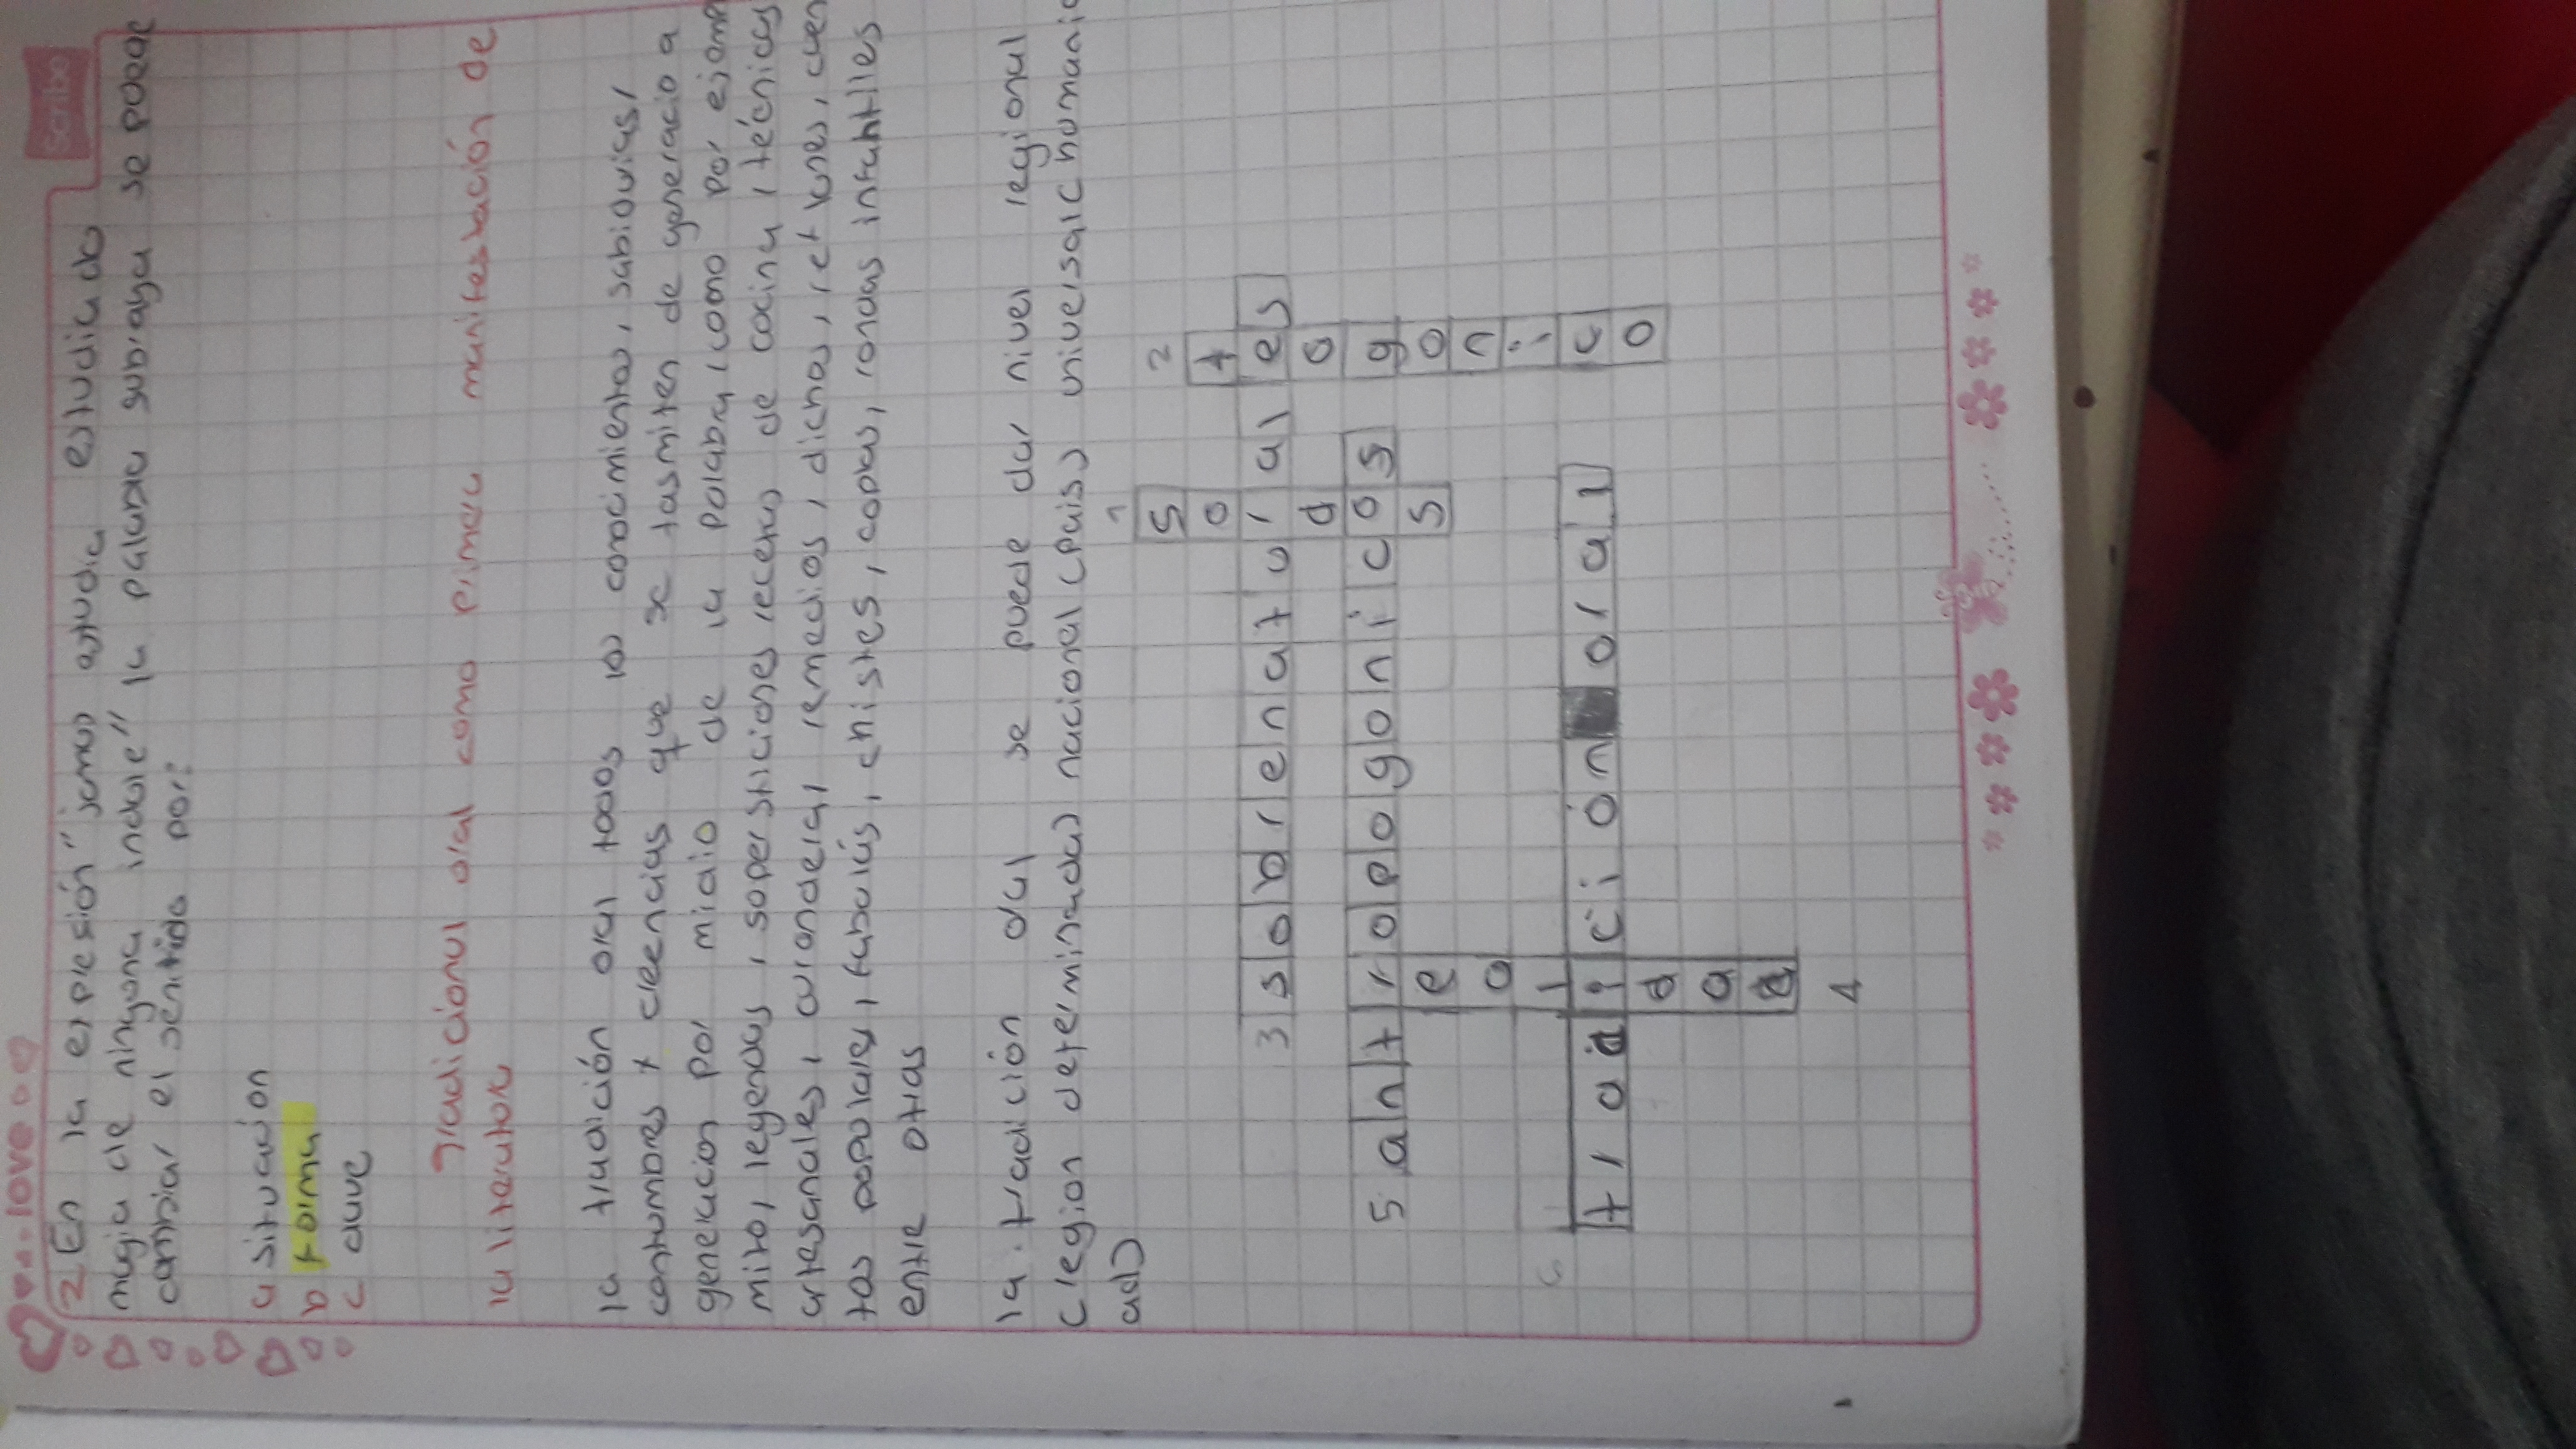 love
Scribe
2 En la expresión "jamas estudia estudiado
magia de ninguna indole" la palabra subraya se puede
cambiar el sentido por:
a situación
b forma
c clave
Tradicional oral como primera manifestación de
la literatura
la tradición oral todos los conocimientos, sabiduvias,
contumbres y creencias que se tasmiten de generacio a
generacion por midio de la palabra, como por ejemp
mito, leyendas, supersticiones recetas de cocina, técnicas
artesanales, curanderas, remedios, dichos, refranes, cuen
tos populares, fabulas, chistes, coplas, rondas infantiles
entre otras
la tradición oral se puede dar nivel regional
(region determinada) nacional (pais) universal (humanid
ad)
1
sordos
2
teogonico
3 sobrenaturales
5 antropogonicos
realidad
4
6
tradición oral